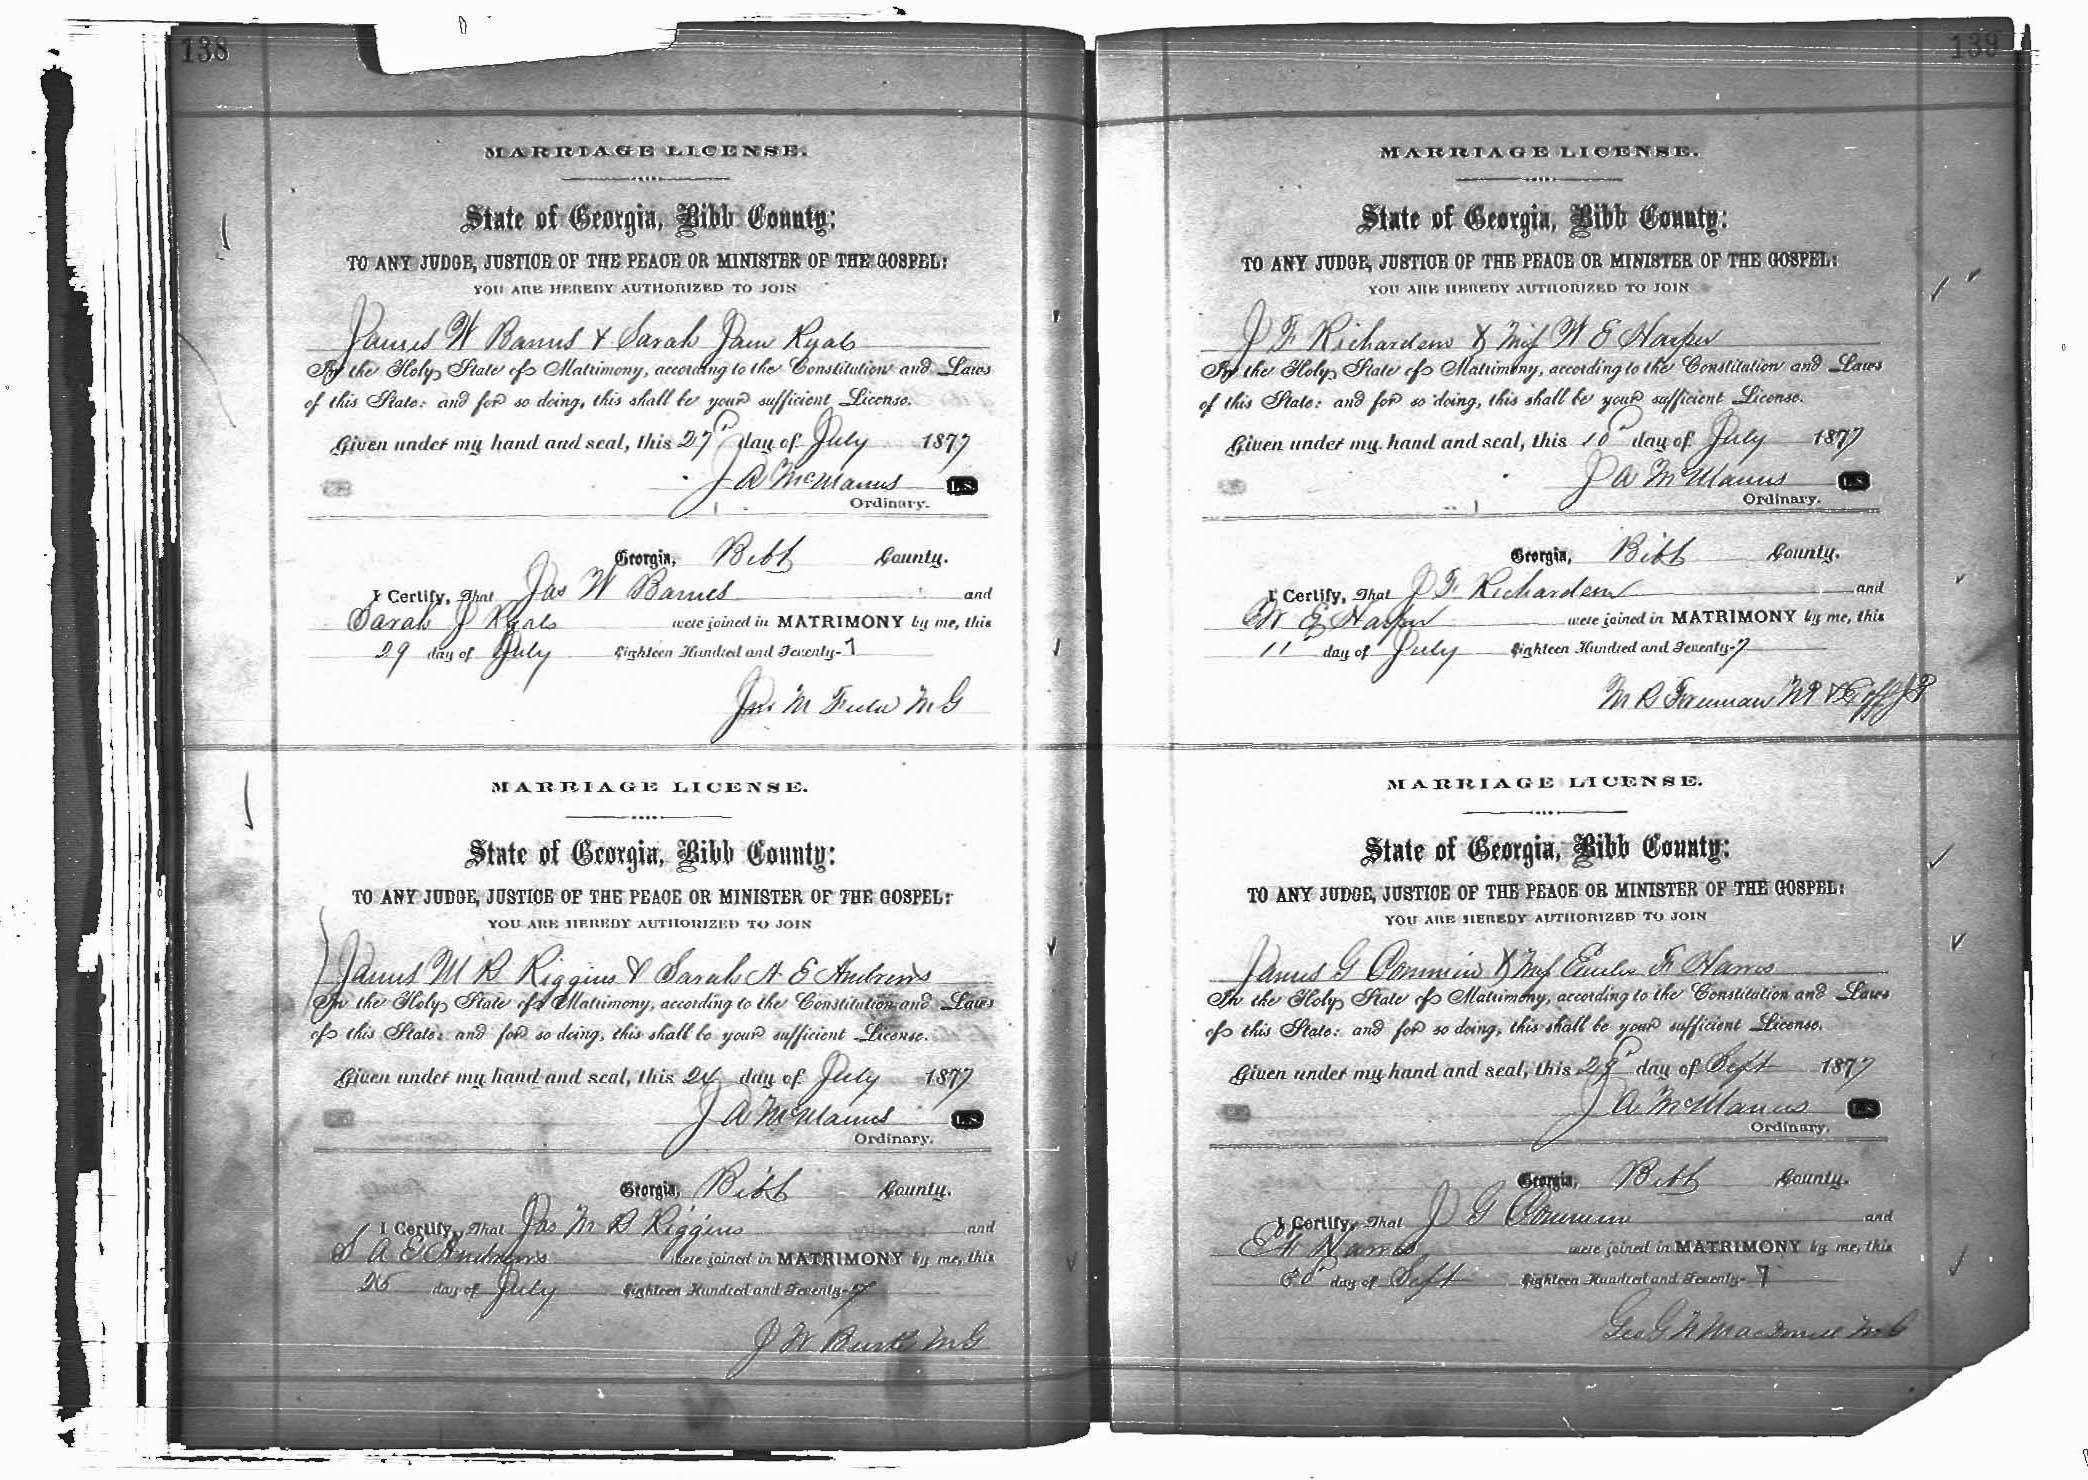 138
MARRIAGE LICENSE.
State of Georgia, Bibb County:
TO ANY JUDGE, JUSTICE OF THE PEACE OR MINISTER OF THE GOSPEL:
YOU ARE HEREBY AUTHORIZED TO JOIN
James W Barnes & Sarah Jane Ryals
In the Holy State of Matrimony, according to the Constitution and Laws
of this State: and for so doing, this shall be your sufficient License.
Given under my hand and seal, this 27 day of July 1877
J A McManus L.S.
Ordinary.
Georgia, Bibb County.
I Certify, That Jas W Barnes and
Sarah J Ryals were joined in MATRIMONY by me, this
29 day of July Eighteen Hundred and Seventy-7
M G
MARRIAGE LICENSE.
State of Georgia, Bibb County:
TO ANY JUDGE, JUSTICE OF THE PEACE OR MINISTER OF THE GOSPEL:
YOU ARE HEREBY AUTHORIZED TO JOIN
James M B Riggins & Sarah A E Andrews
In the Holy State of Matrimony, according to the Constitution and Laws
of this State: and for so doing, this shall be your sufficient License.
Given under my hand and seal, this 24 day of July 1877
J A McManus L.S.
Ordinary.
Georgia, Bibb County.
I Certify, That Jas M B Riggins and
S A E Andrews were joined in MATRIMONY by me, this
day of July Eighteen Hundred and Seventy-7
J W Burke M G
139
MARRIAGE LICENSE.
State of Georgia, Bibb County:
TO ANY JUDGE, JUSTICE OF THE PEACE OR MINISTER OF THE GOSPEL:
YOU ARE HEREBY AUTHORIZED TO JOIN
J F Richardson & Miss W E Harper
In the Holy State of Matrimony, according to the Constitution and Laws
of this State: and for so doing, this shall be your sufficient License.
Given under my hand and seal, this 10 day of July 1877
J A McManus L.S.
Ordinary.
Georgia, Bibb County.
I Certify, That J F Richardson and
W E Harper were joined in MATRIMONY by me, this
11 day of July Eighteen Hundred and Seventy-7
M R Freeman NP & Ex off J P
MARRIAGE LICENSE.
State of Georgia, Bibb County:
TO ANY JUDGE, JUSTICE OF THE PEACE OR MINISTER OF THE GOSPEL:
YOU ARE HEREBY AUTHORIZED TO JOIN
James G & Miss F Harris
In the Holy State of Matrimony, according to the Constitution and Laws
of this State: and for so doing, this shall be your sufficient License.
Given under my hand and seal, this day of Sept 1877
J A McManus L.S.
Ordinary.
Georgia, Bibb County.
I Certify, That J G and
E F Harris were joined in MATRIMONY by me, this
30 day of Sept Eighteen Hundred and Seventy-7
Geo G N MacDonell M G